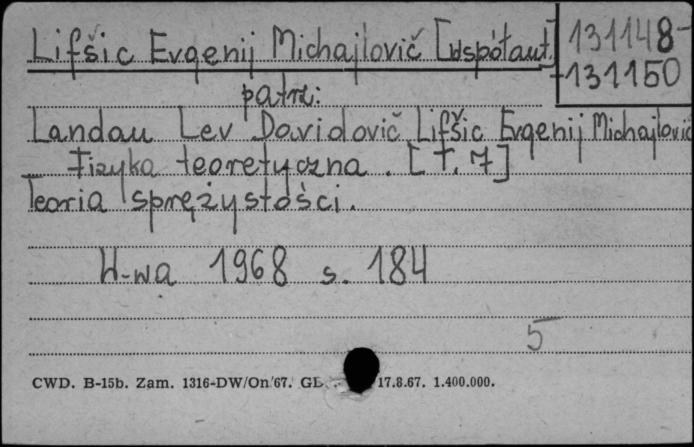 Lifšic Evgenij Michajlovič [współaut]
131148-
-131150
patrz:
Landau Lev Davidovič Lifšic Evgenij Michajlovič
Fizyka teoretyczna. [T. 7]
Teoria sprężystości.
W-wa 1968 s. 184
5
CWD. B-15b. Zam. 1316-DW/On/67. 17.8.67. 1.400.000.